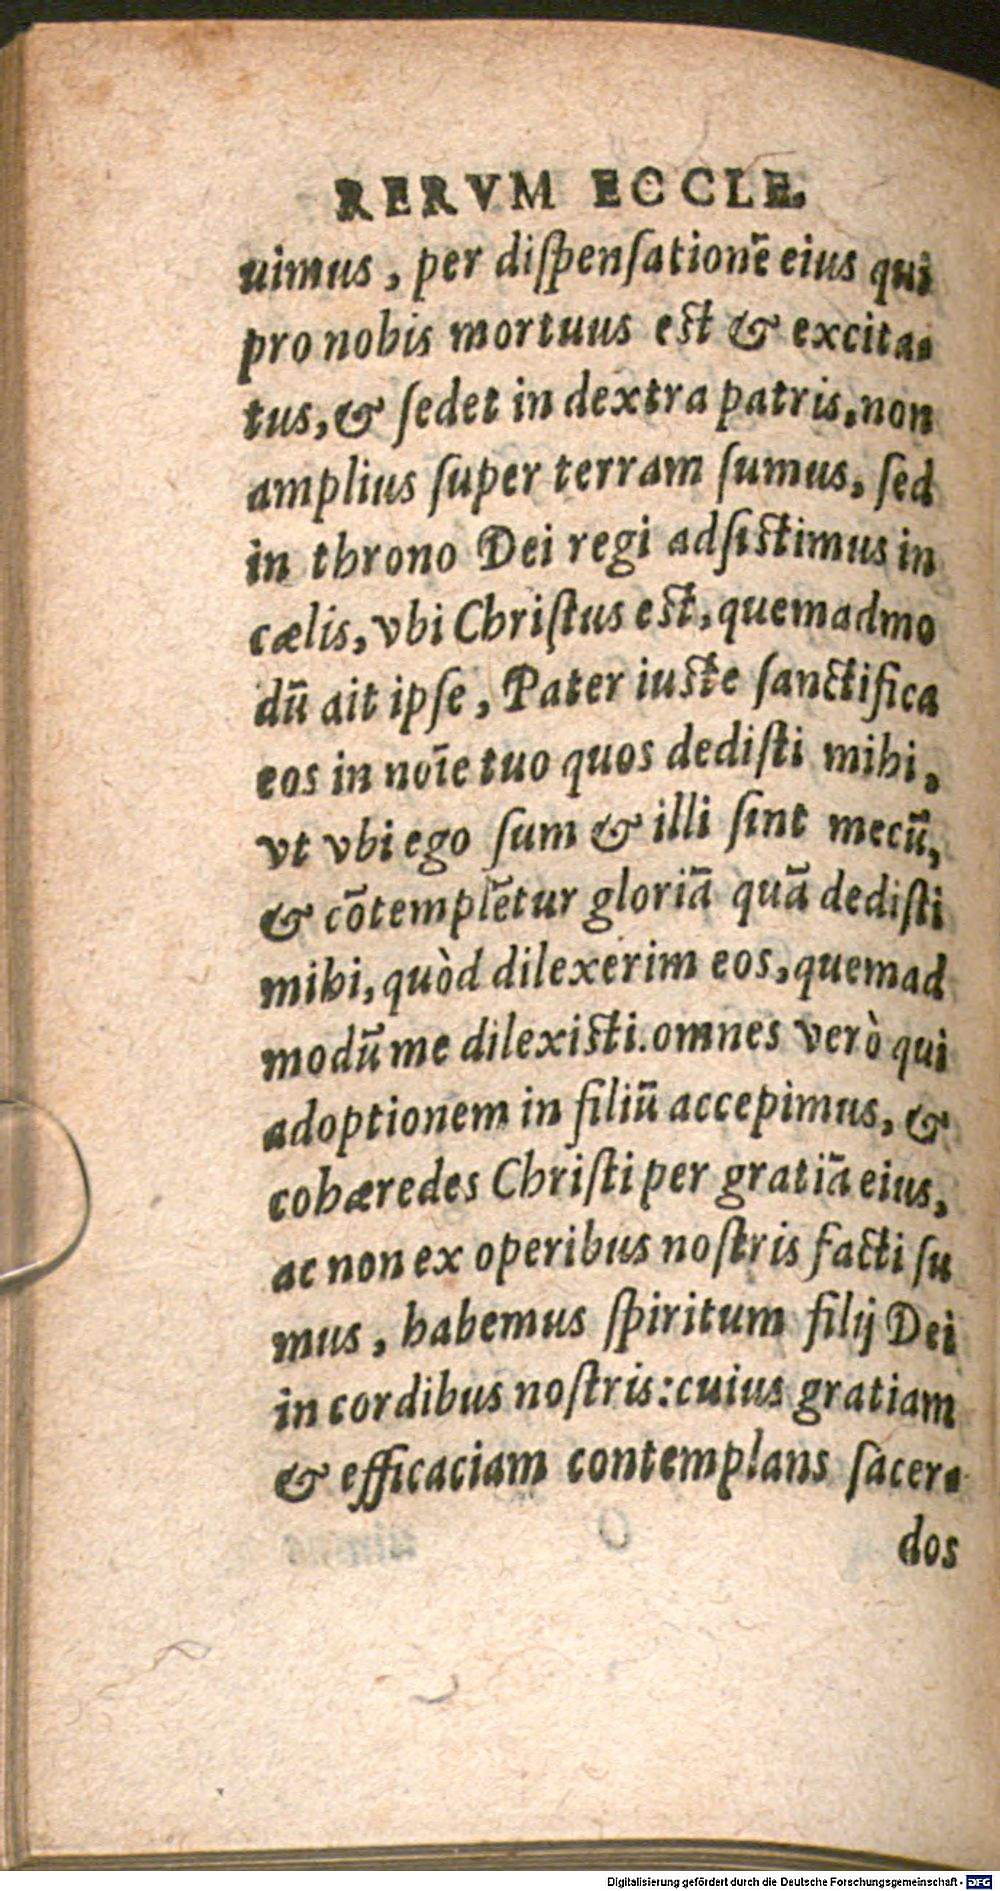 RERVM ECCLE.
uimus, per dispensationē eius qui
pro nobis mortuus est & excita-
tus, & sedet in dextra patris, non
amplius super terram sumus, sed
in throno Dei regi adsistimus in
cælis, vbi Christus est, quemadmo
dū ait ipse, Pater iuste sanctifica
eos in noīe tuo quos dedisti mihi,
vt vbi ego sum & illi sint mecū,
& cōtemplētur gloriā quā dedisti
mihi, quòd dilexerim eos, quemad
modū me dilexisti. omnes verò qui
adoptionem in filiū accepimus, &
cohæredes Christi per gratiā eius,
ac non ex operibus nostris facti su
mus, habemus spiritum filij Dei
in cordibus nostris: cuius gratiam
& efficaciam contemplans sacer-
dos
Digitalisierung gefördert durch die Deutsche Forschungsgemeinschaft - DFG